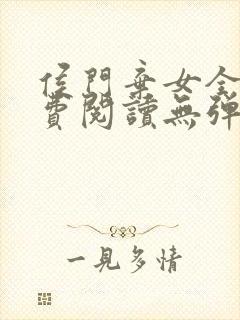 侯門棄女全
費閱讀無彈
一見多情